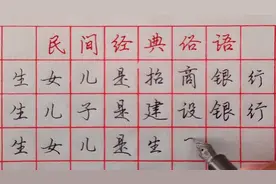 民间经典俗语
生女儿是招商银行
生儿子是建设银行
生女儿是生